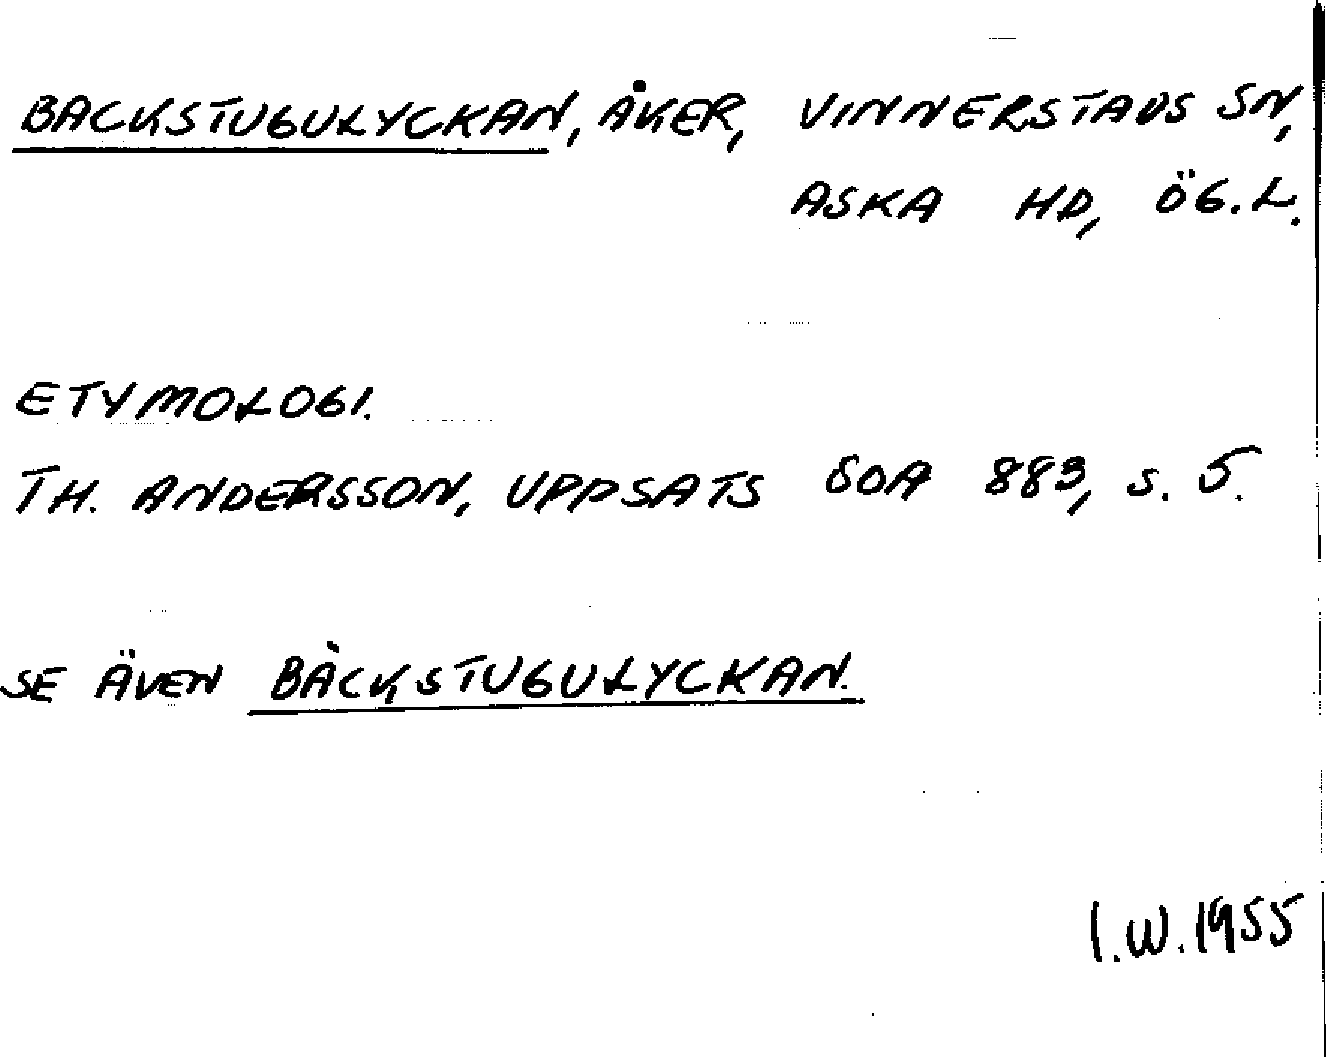 BACKSTUGULYCKAN, ÅKER, VINNERSTADS SN,
ASKA HD, ÖG.L.
ETYMOLOGI.
TH. ANDERSSON, UPPSATS SOA 883, S. 5.
SE ÄVEN BÄCKSTUGULYCKAN.
I.W. 1955